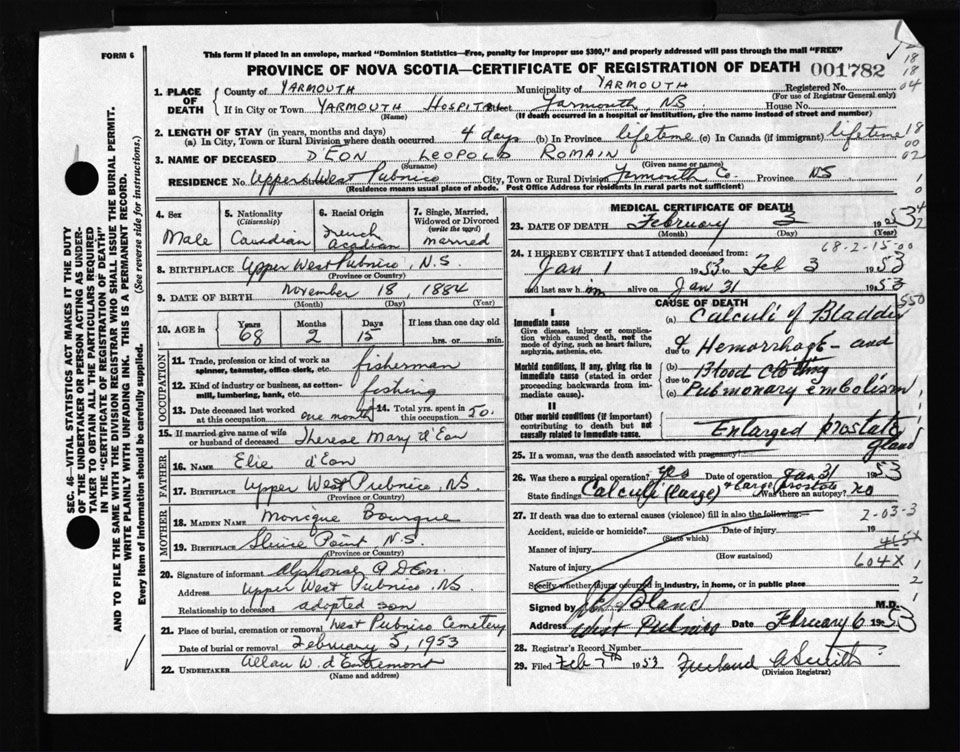 FORM 6
This form if placed in an envelope, marked "Dominion Statistics—Free, penalty for improper use $300," and properly addressed will pass through the mail "FREE"
PROVINCE OF NOVA SCOTIA—CERTIFICATE OF REGISTRATION OF DEATH 001782
SEC. 46—VITAL STATISTICS ACT MAKES IT THE DUTY OF THE UNDERTAKER OR PERSON ACTING AS UNDERTAKER TO OBTAIN ALL THE PARTICULARS REQUIRED IN THE "CERTIFICATE OF REGISTRATION OF DEATH" AND TO FILE THE SAME WITH THE DIVISION REGISTRAR WHO SHALL ISSUE THE BURIAL PERMIT.
WRITE PLAINLY WITH UNFADING INK. THIS IS A PERMANENT RECORD.
Every item of Information should be carefully supplied. (See reverse side for instructions.)
1. PLACE OF DEATH County of YARMOUTH Municipality of YARMOUTH Registered No.
(For use of Registrar General only)
If in City or Town YARMOUTH HOSPITAL Street Yarmouth, NS. House No.
(Name) (If death occurred in a hospital or institution, give the name instead of street and number)
2. LENGTH OF STAY (in years, months and days)
(a) In City, Town or Rural Division where death occurred 4 days (b) In Province lifetime (c) In Canada (if immigrant) lifetime
3. NAME OF DECEASED D'EON, LEOPOLD ROMAIN
(Surname) (Given name or names)
RESIDENCE No Upper West Pubnico City, Town or Rural Division Yarmouth Co. Province NS
(Residence means usual place of abode. Post Office Address for residents in rural parts not sufficient)
4. Sex Male
5. Nationality (Citizenship) Canadian
6. Racial Origin French Acadian
7. Single, Married, Widowed or Divorced (write the word) married
8. BIRTHPLACE Upper West Pubnico, N.S.
(Province or Country)
9. DATE OF BIRTH November 18, 1884
(Month) (Day) (Year)
10. AGE in Years 68 Months 2 Days 15 If less than one day old hrs. or min.
OCCUPATION
11. Trade, profession or kind of work as spinner, teamster, office clerk, etc. fisherman
12. Kind of industry or business, as cotton-mill, lumbering, bank, etc. fishing
13. Date deceased last worked at this occupation one month
14. Total yrs. spent in this occupation 50.
15. If married give name of wife or husband of deceased Therese Mary d'Eon
FATHER
16. NAME Elie d'Eon
17. BIRTHPLACE Upper West Pubnico, NS.
(Province or Country)
MOTHER
18. MAIDEN NAME Monique Bourque
19. BIRTHPLACE Sluice Point, N.S.
(Province or Country)
20. Signature of informant Alphonse A D'Eon
Address Upper West Pubnico, NS
Relationship to deceased adopted son
21. Place of burial, cremation or removal West Pubnico Cemetery
Date of burial or removal February 5, 1953
22. UNDERTAKER Allan W. d'Entremont
(Name and address)
MEDICAL CERTIFICATE OF DEATH
23. DATE OF DEATH February 3 1953
(Month) (Day) (Year)
68-2-15-00
24. I HEREBY CERTIFY that I attended deceased from:
Jan 1 1953 to Feb 3 1953
and last saw him alive on Jan 31 1953
CAUSE OF DEATH
I
Immediate cause
Give disease, injury or complication which caused death, not the mode of dying, such as heart failure, asphyxia, asthenia, etc.
(a) Calculi of Bladder
due to Hemorrhage and
Morbid conditions, if any, giving rise to immediate cause (stated in order proceeding backwards from immediate cause).
(b) Blood clotting
due to
(c) Pulmonary embolism
II
Other morbid conditions (if important) contributing to death but not causally related to immediate cause.
Enlarged prostate gland
25. If a woman, was the death associated with pregnancy?
26. Was there a surgical operation? yes Date of operation Jan 31 1953
State findings Calculi (large) & large prostate Was there an autopsy? no
27. If death was due to external causes (violence) fill in also the following:—
2-03-3
Accident, suicide or homicide? Date of injury 19
(State which)
Manner of injury
(How sustained)
Nature of injury 604X
Specify whether injury occurred in industry, in home, or in public place
Signed by Blanc M.D.
Address West Pubnico Date February 6 1953
28. Registrar's Record Number
29. Filed Feb 7th 1953
(Division Registrar)